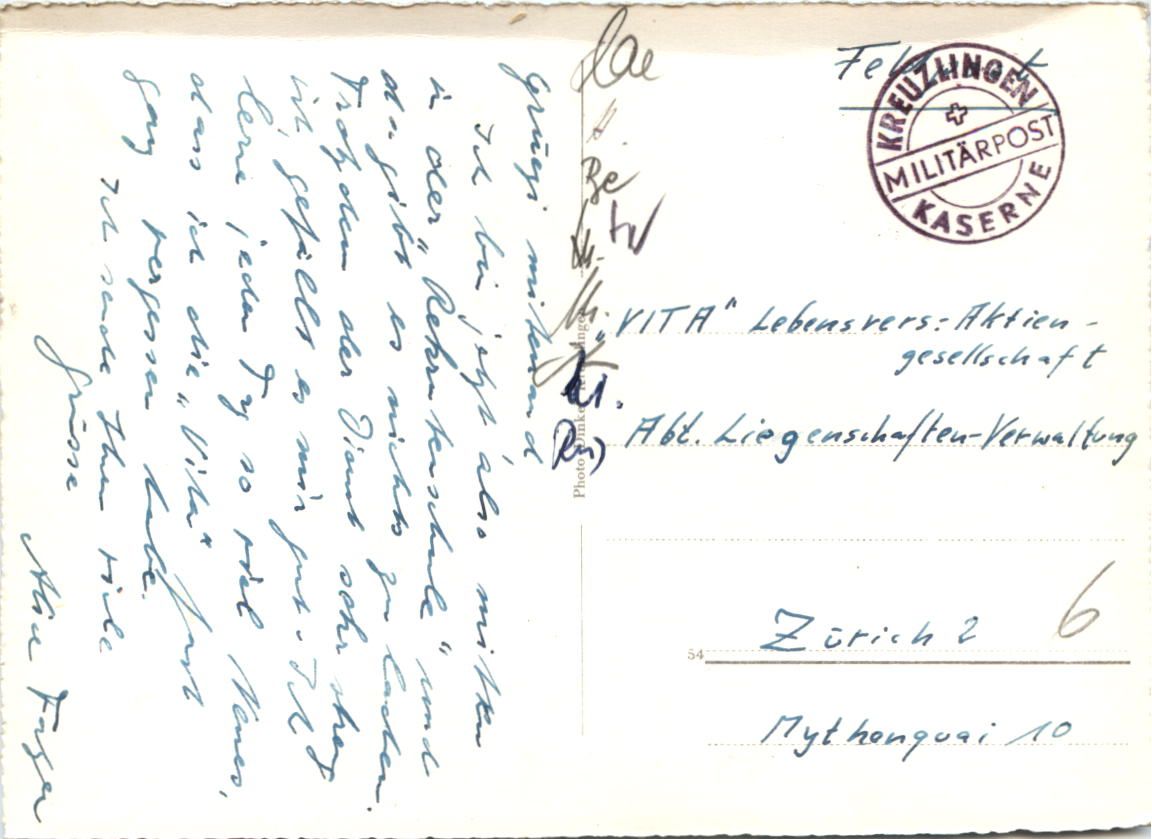 Grüezi mitenand,
Ich bin jetzt also mitten
in der „Rekrutenschule" und
da gibt es nichts zu lachen.
Trotzdem der Dienst sehr streng
ist gefällt es mir gut. Ich
lerne jeden Tag so viel Neues,
dass ich die „Vita" fast
ganz vergessen habe.
Ich sende Ihnen viele
Grüsse
Feldpost
KREUZLINGEN
MILITÄRPOST
KASERNE
„VITA" Lebensvers.-Aktien-
gesellschaft
Abt. Liegenschaften-Verwaltung
Zürich 2
6
54
Mythenquai 10
Photo